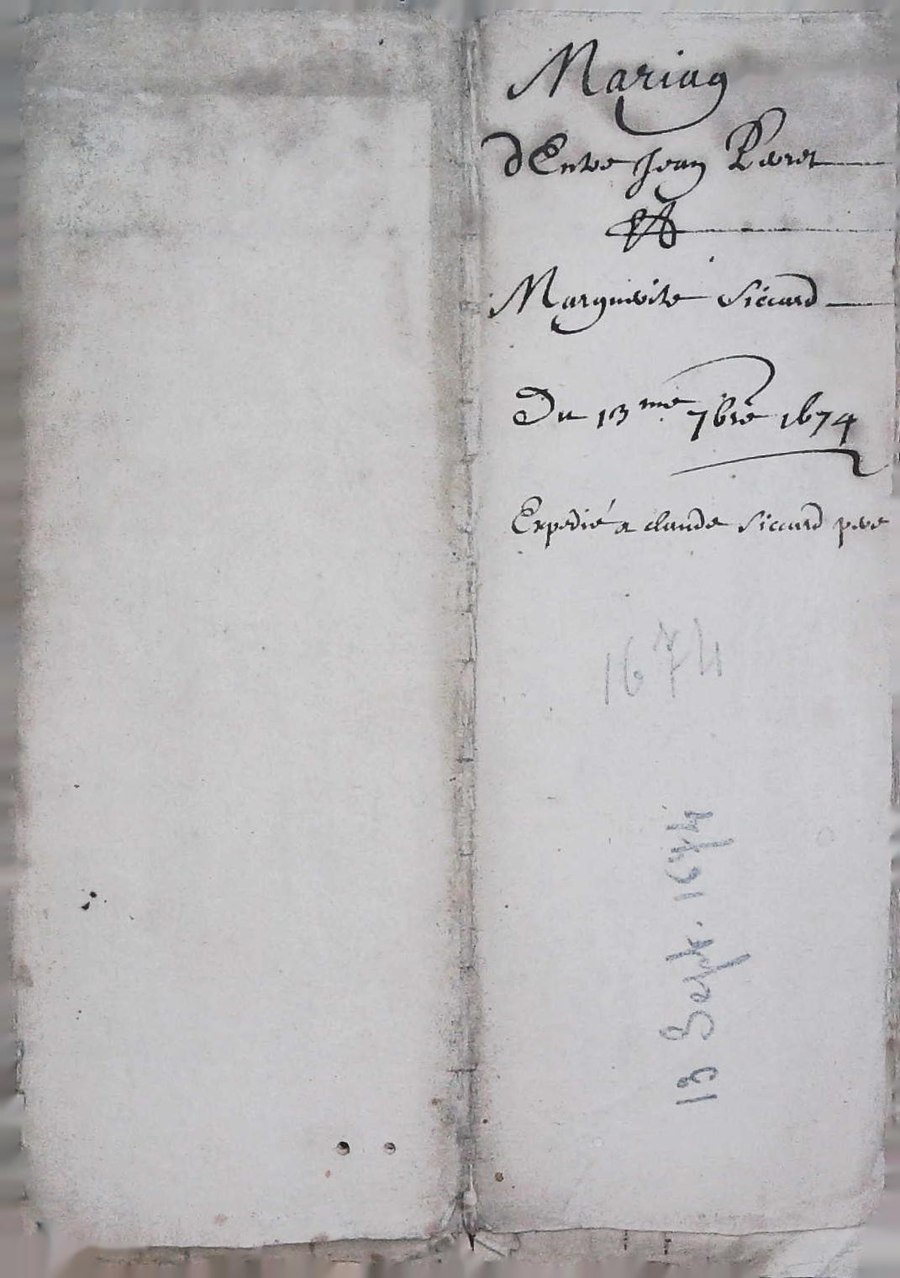 Mariag
d'Entre Jean
Et
Marguerite Siccard
Du 13me 7bre 1674
Expedié a claude Siccard pere
1674
13 Sept. 1674